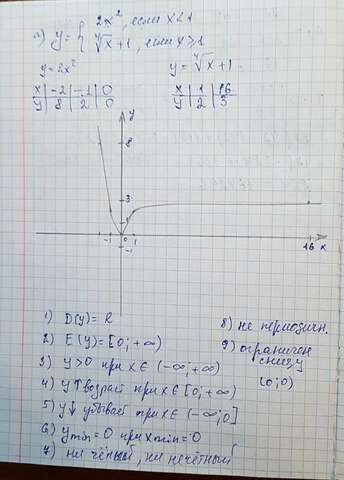 y = { 2x², если x<1
⁴√x + 1, если x ≥ 1
y = 2x²
y = ⁴√x + 1
x | -2 | -1 | 0
y | 8 | 2 | 0
x | 1 | 16
y | 2 | 3
y
8
3
1
-1 0 1 16 x
-1
1) D(y) = R
2) E(y) = [0; +∞)
3) y>0 при x ∈ (-∞; +∞)
4) y↑ возраст при x ∈ [0; +∞)
5) y↓ убывает при x ∈ (-∞; 0]
6) y min = 0 при x min = 0
7) ни чётный, ни нечётный
8) не
9) ограничен
снизу
(0; 0)